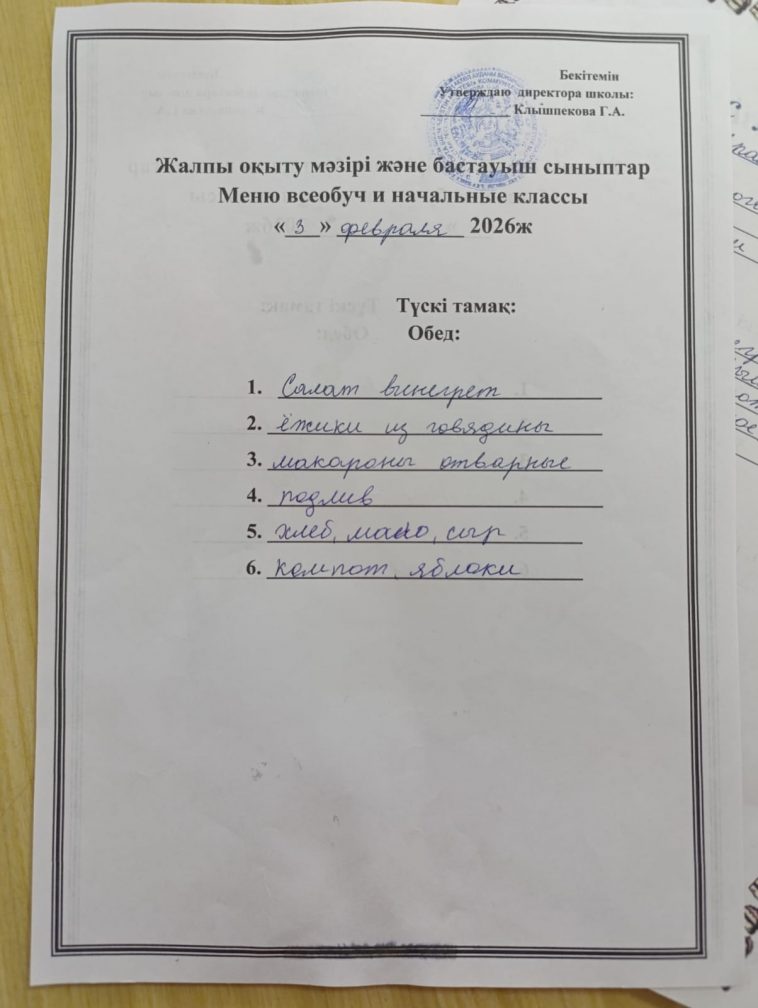 Бекітемін
Утверждаю директора школы:
____________ Клышпекова Г.А.
Жалпы оқыту мәзірі және бастауыш сыныптар
Меню всеобуч и начальные классы
«_3_» февраля 2026ж
Түскі тамақ:
Обед:
1. Салат винегрет
2. ёжики из говядины
3. макароны отварные
4. подлив
5. хлеб, масло, сыр
6. компот, яблоки